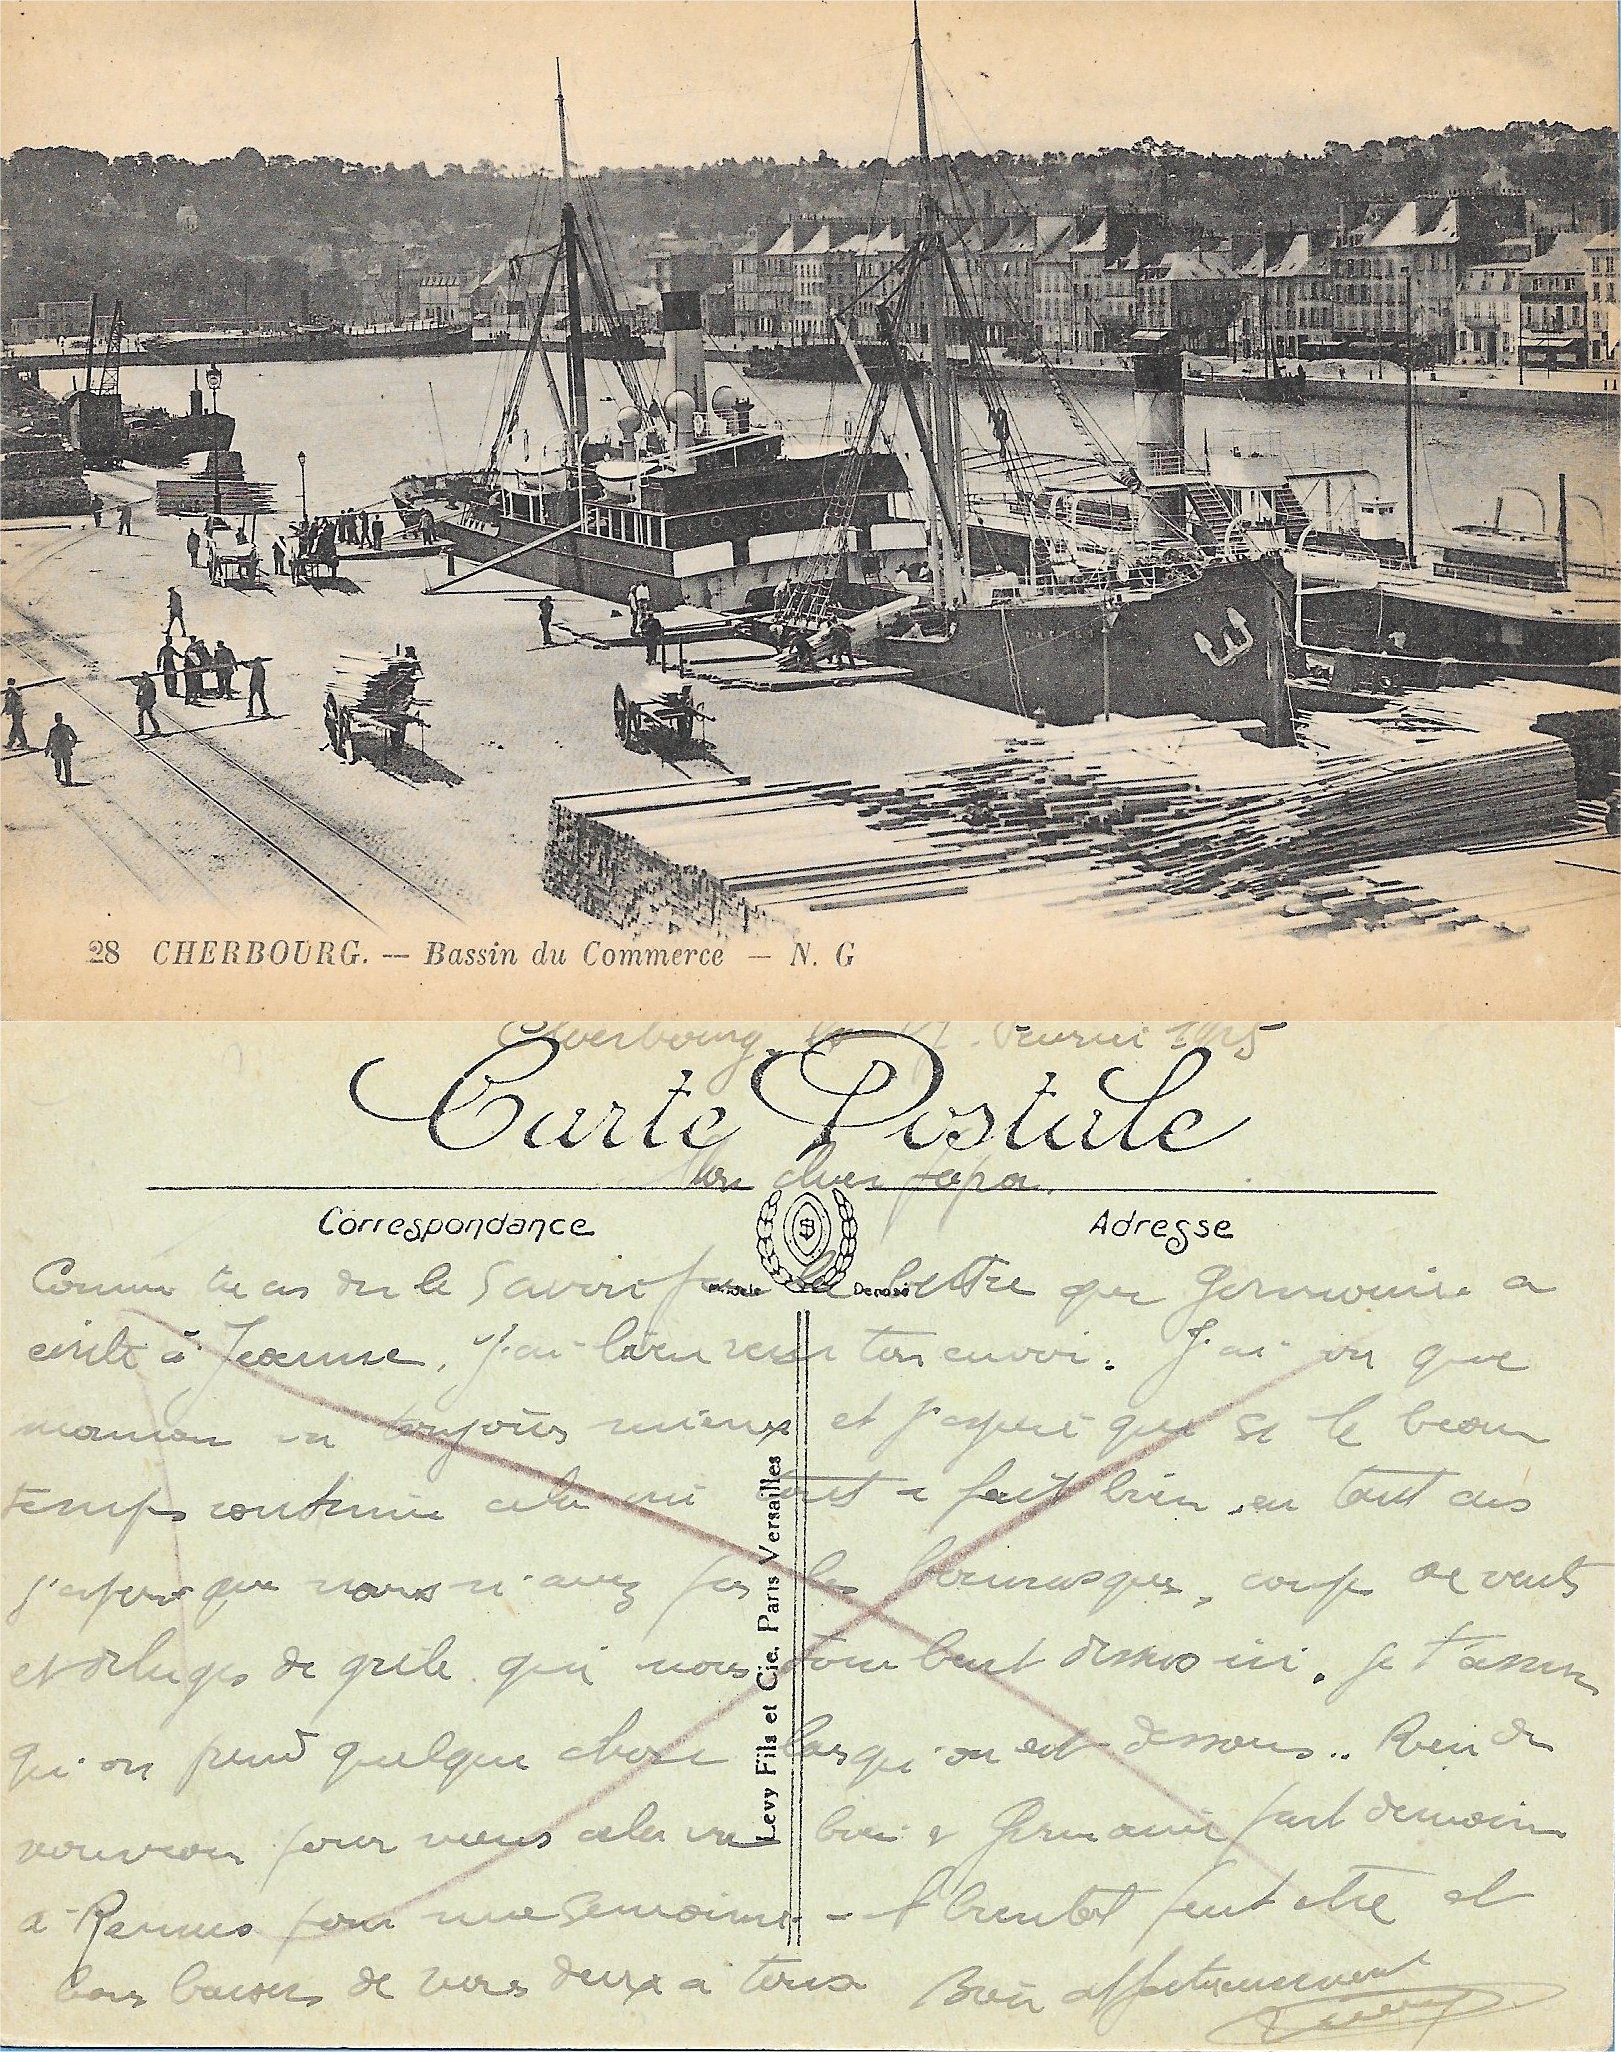 28 CHERBOURG. — Bassin du Commerce — N. G
Cherbourg, le Février 1915
Carte Postale
Mon cher papa.
Correspondance
Adresse
Modèle Déposé
Comme tu as du le savoir par la lettre que Germaine a
écrite à Jeanne, j'ai bien reçu ton envoi. J'ai vu que
maman va toujours mieux et j'espère que si le beau
temps continue cela ira tout a fait bien, en tout cas
j'espère que vous n'avez pas les bourrasques, coups de vents
et déluges de grêle qui nous tombent dessus ici. Je t'assure
qu'on prend quelque chose lorsqu'on est dessous.. Rien de
nouveau pour nous cela va bien & Germaine part demain
à Rennes pour une semaine - A bientot peut etre et
bons baisers de nous deux a tous
Bien affectueusement
Levy Fils et Cie. Paris Versailles